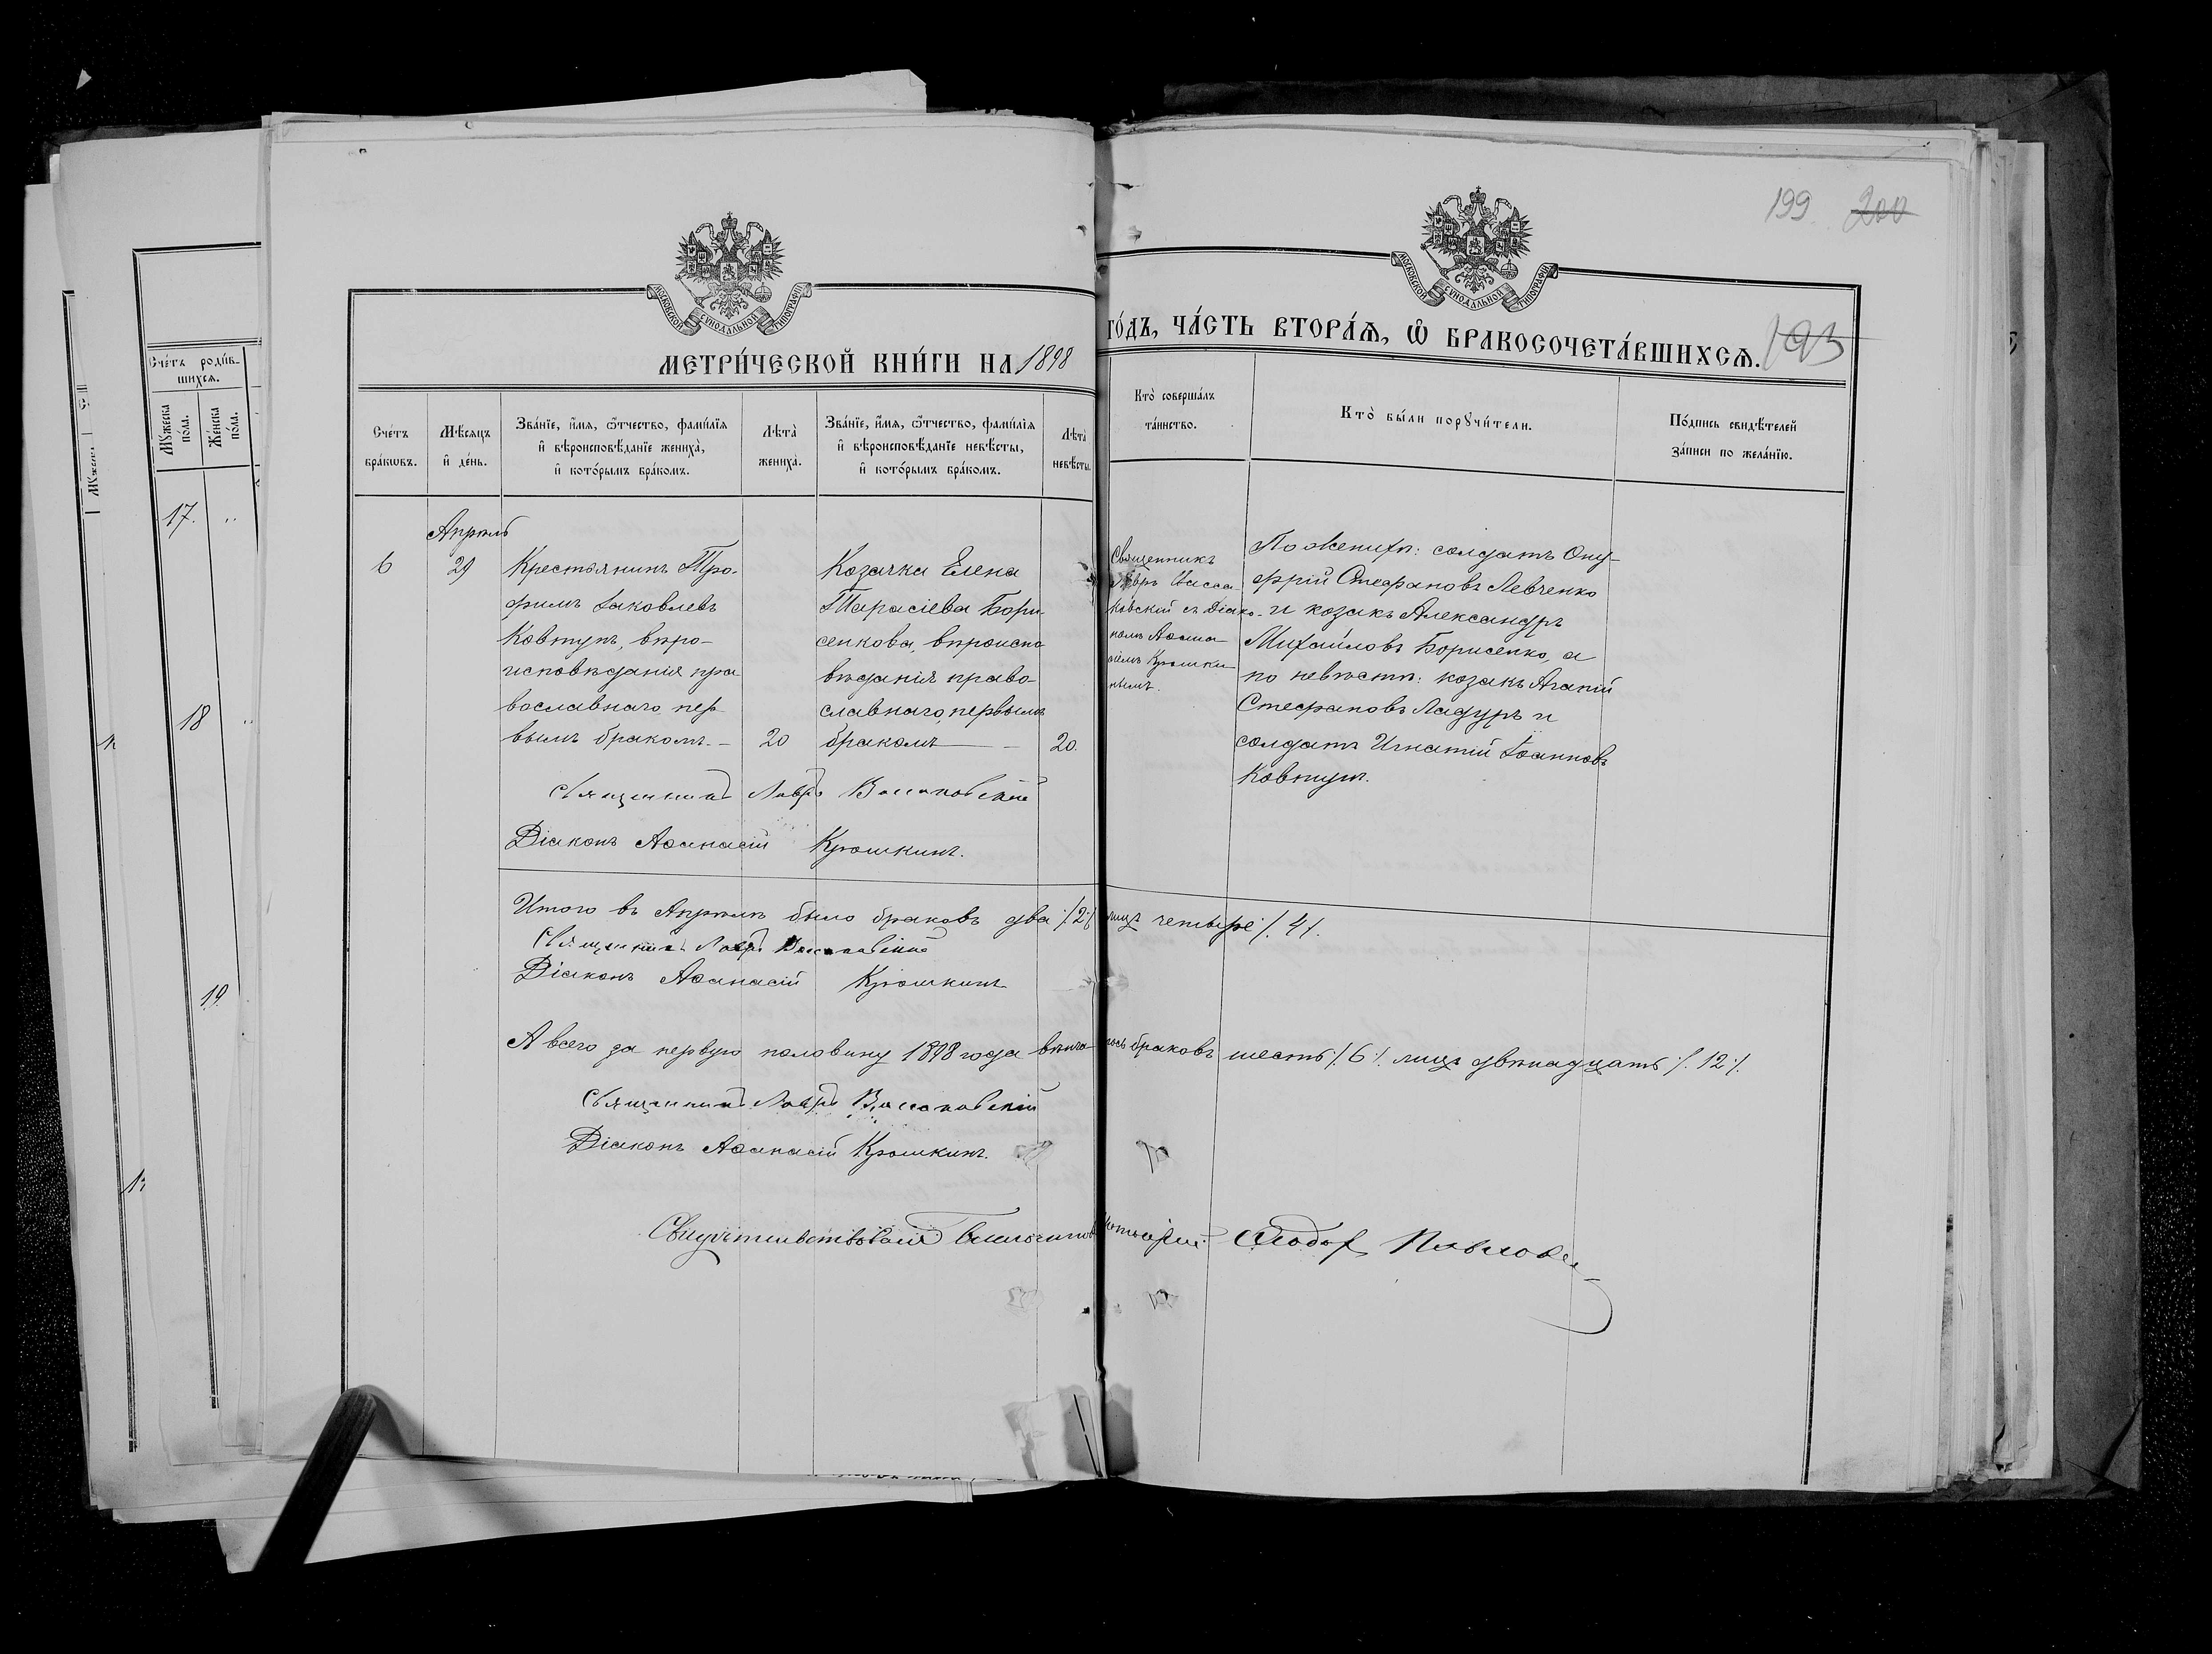 199 200
193
МОСКОВСКОЙ СУНОДАЛЬНОЙ ТИПОГРАФІИ
МОСКОВСКОЙ СУНОДАЛЬНОЙ ТИПОГРАФІИ
МЕТРИ́ЧЕСКОЙ КНИ́ГИ НА 1898 ГО́ДЪ, ЧА́СТЬ ВТОРА́Я, Ѡ БРАКОСОЧЕТА́ВШИХСЯ.
Сче́тъ роди́в-
шихся.
Мꙋ́жеска по́ла.
Же́нска по́ла.
17.
18
19
Сче́тъ
бра́кѡвъ.
Мѣ́сяцъ
и҆ де́нь.
Зва́нїе, и҆́мя, ѻ҆́тчество, фами́лїя
и҆ вѣроисповѣ́данїе жениха̀,
и҆ кото́рымъ бра́комъ.
Лѣта̀
жениха̀.
Зва́нїе, и҆́мя, ѻ҆́тчество, фами́лїя
и҆ вѣроисповѣ́данїе невѣ́сты,
и҆ кото́рымъ бра́комъ.
Лѣта̀
невѣ́сты.
Кто̀ соверша́лъ
та́инство.
Кто̀ бы́ли порꙋчи́тели.
По́дпись свидѣ́телей
за́писи по жела́нїю.
Апрѣль
6
29
Крестьянинъ Тро-
фимъ Іаковлевъ
Ковтунъ, вѣро-
исповѣданія пра
вославнаго, пер
вымъ бракомъ. –
20
Козачка Елена
Тарасіева Бори
сенкова, вѣроиспо
вѣданія право-
славнаго, первымъ
бракомъ —
20.
Священникъ
Лавръ Васса
ковскій съ Діако-
номъ Аѳана
сіемъ Крошки
нымъ.
По женихѣ: солдатъ Ону-
фрій Стефановъ Левченко
и козакъ Александръ
Михайловъ Борисенко, а
по невѣстѣ: козакъ Агапій
Стефановъ Ладуръ и
солдатъ Игнатій Іоанновъ
Ковтунъ.
Священникъ Лавръ Вассаковскій
Діаконъ Аѳанасій Крошкинъ.
Итого въ Апрѣлѣ было браковъ два /2/ лицъ четыре /. 4 /.
Священникъ Лавръ Вассаковскій
Діаконъ Аѳанасій Крошкинъ
А всего за первую половину 1898 года вѣнча лось браковъ шесть /. 6 /. лицъ двѣнадцать /. 12 /.
Священникъ Лавръ Вассаковскій
Діаконъ Аѳанасій Крошкинъ.